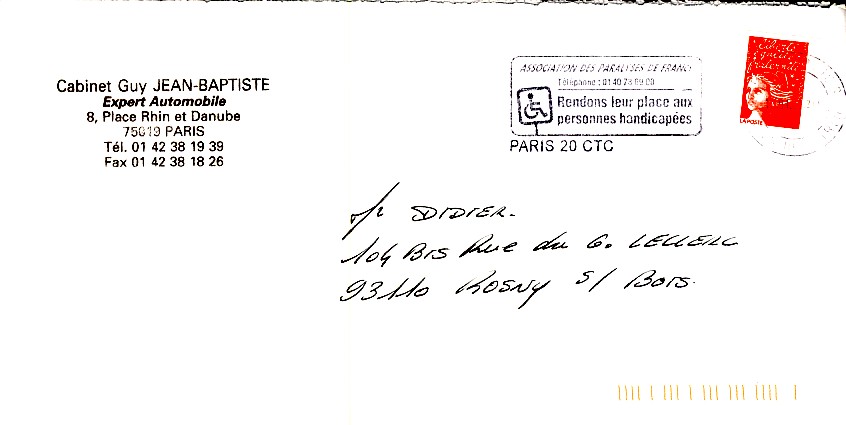 Cabinet Guy JEAN-BAPTISTE
Expert Automobile
8, Place Rhin et Danube
75019 PARIS
Tél. 01 42 38 19 39
Fax 01 42 38 18 26
ASSOCIATION DES PARALYSES DE FRANCE
Téléphone : 01 40 78 69 00
Rendons leur place aux
personnes handicapées
PARIS 20 CTC
Liberté
égalité
fraternité
LA POSTE
DIDIER.
104 BIS Rue du G. LECLERC
93110 ROSNY s/ BOIS.